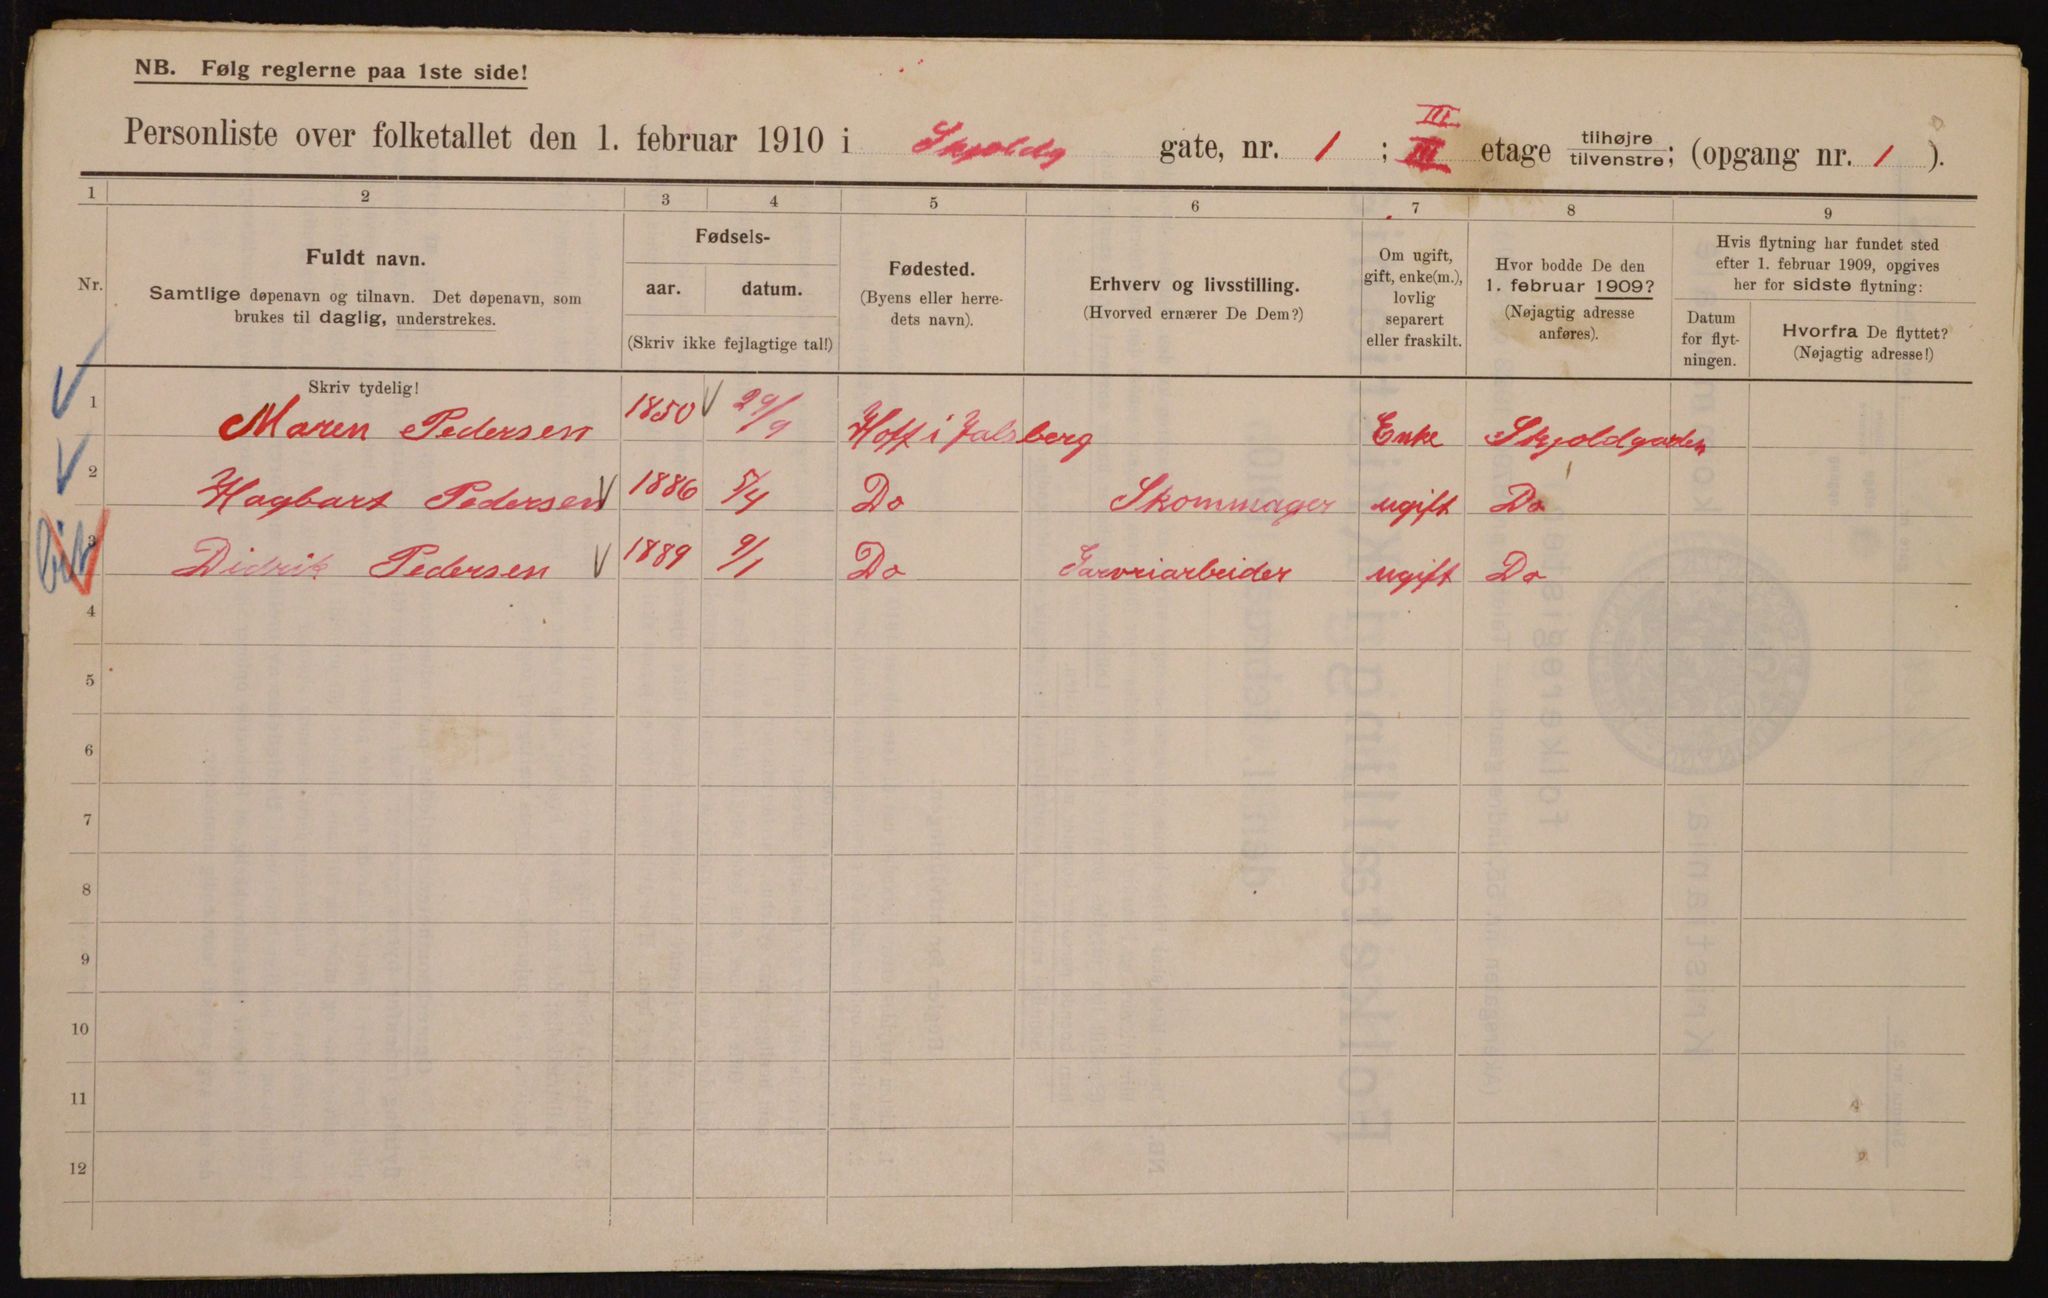 NB. Følg reglerne paa 1ste side!
Personliste over folketallet den 1. februar 1910 i Skjoldg gate, nr. 1 ; III III etage tilhøjre tilvenstre; (opgang nr. 1 ).
1 2 3 4 5 6 7 8 9
Nr.
Fuldt navn.
Samtlige døpenavn og tilnavn. Det døpenavn, som
brukes til daglig, understrekes.
Fødsels-
aar. datum.
(Skriv ikke fejlagtige tal!)
Fødested.
(Byens eller herre-
dets navn).
Erhverv og livsstilling.
(Hvorved ernærer De Dem?)
Om ugift,
gift, enke(m.),
lovlig
separert
eller fraskilt.
Hvor bodde De den
1. februar 1909?
(Nøjagtig adresse
anføres).
Hvis flytning har fundet sted
efter 1. februar 1909, opgives
her for sidste flytning:
Datum
for flyt-
ningen.
Hvorfra De flyttet?
(Nøjagtig adresse!)
Skriv tydelig!
1 Maren Pedersen 1850 29/9 Hoff i Jalsberg Enke Skjoldgaden 1
2 Hagbart Pedersen 1886 5/4 Do Skommager ugift Do
3 Didrik Pedersen 1889 9/1 Do Garveriarbeider ugift Do
4
5
6
7
8
9
10
11
12